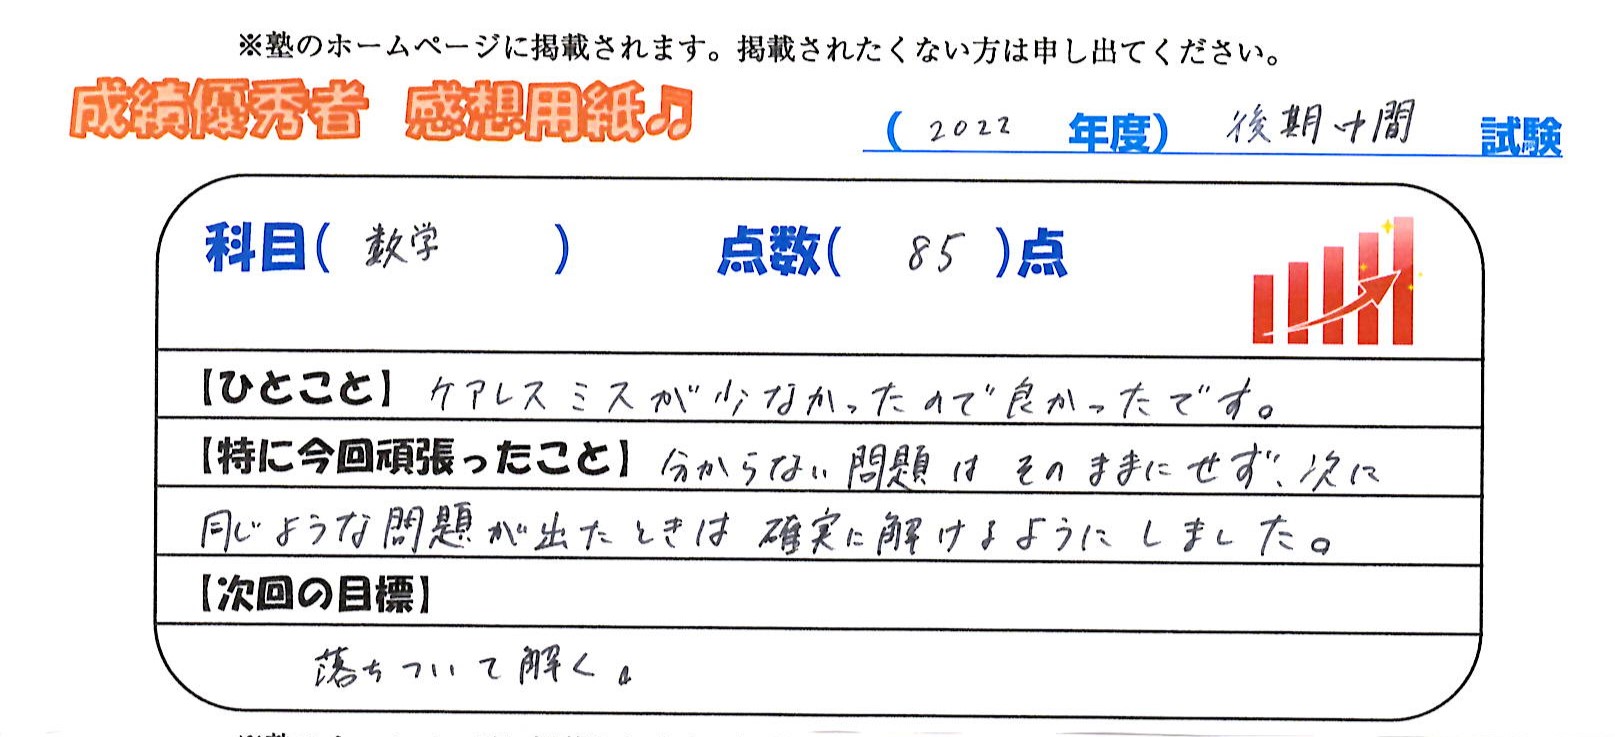 ※塾のホームページに掲載されます。掲載されたくない方は申し出てください。
成績優秀者 感想用紙♫
(2022 年度) 後期中間 試験
科目( 数学 ) 点数( 85 )点
【ひとこと】ケアレスミスが少なかったので良かったです。
【特に今回頑張ったこと】分からない問題はそのままにせず、次に
同じような問題が出たときは確実に解けるようにしました。
【次回の目標】
落ちついて解く。